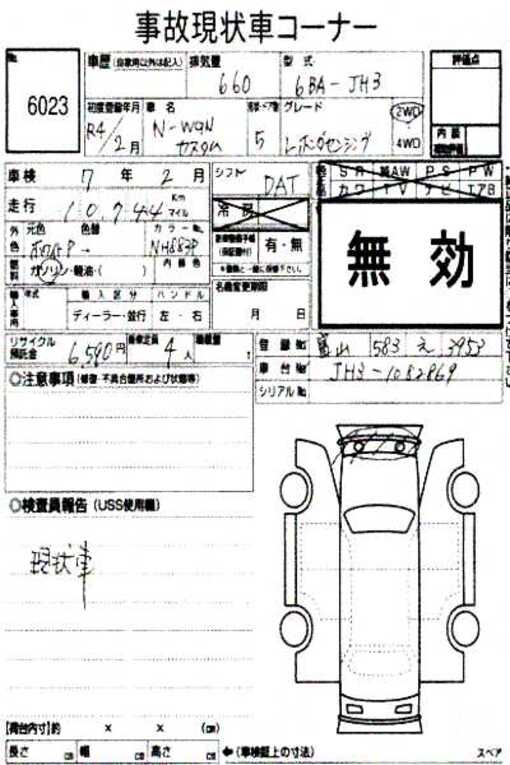 事故現状車コーナー
No. 6023
車歴 (自家用以外は記入) 排気量 660 型式 6BA-JH3 評価点
初度登録年月 R4/2月 車名 N-WGN カスタム 形状・ドア数 5 グレード L・ホンダセンシング 2WD 4WD 内装
車検 7年 2月 シフト DAT SR AW PS PW
カワ TV ナビ エアB
走行 10,744 Km マイル 冷房
外色 元色 色替 カラーNo. (保証書付) 有・無
ホワイトP → NH883P
ガソリン・軽油・( ) 内装色
無効
名義変更期限
月 日
年式 輸入区分 ハンドル
ディーラー・並行 左・右
リサイクル預託金 6,590円 乗車定員 4人 積載量 t 登録No. 富山 583 え 3953
車台No. JH3-1082869
シリアルNo.
◎注意事項 (修復・不具合箇所および状態等)
◎検査員報告 (USS使用欄)
現状車
【荷台内寸】約 × × (cm)
長さ cm 幅 cm 高さ cm ←(車検証上の寸法) スペア